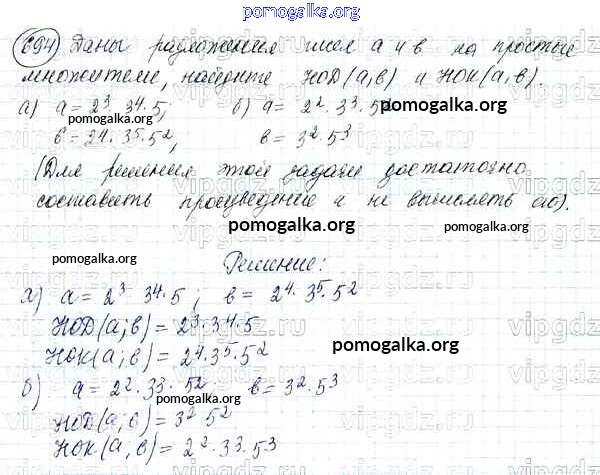 pomogalka.org
694) Даны разложения чисел a и в на простые
множители, найдите НОД(a,в) и НОК(a,в).
а) a = 2³·3⁴·5; б) a = 2²·3³·5²
в = 2⁴·3⁵·5², в = 3²·5³
pomogalka.org
pomogalka.org
(Для решения этой задачи достаточно
составить произведение и не вычислять его).
pomogalka.org
pomogalka.org
Решение:
а) a = 2³·3⁴·5; в = 2⁴·3⁵·5²
НОД(a;в) = 2³·3⁴·5
НОК(a;в) = 2⁴·3⁵·5²
pomogalka.org
б) a = 2²·3³·5²; в = 3²·5³
pomogalka.org
НОД(a,в) = 3²·5²
НОК(a,в) = 2²·3³·5³
pomogalka.org
vipgdz.ru